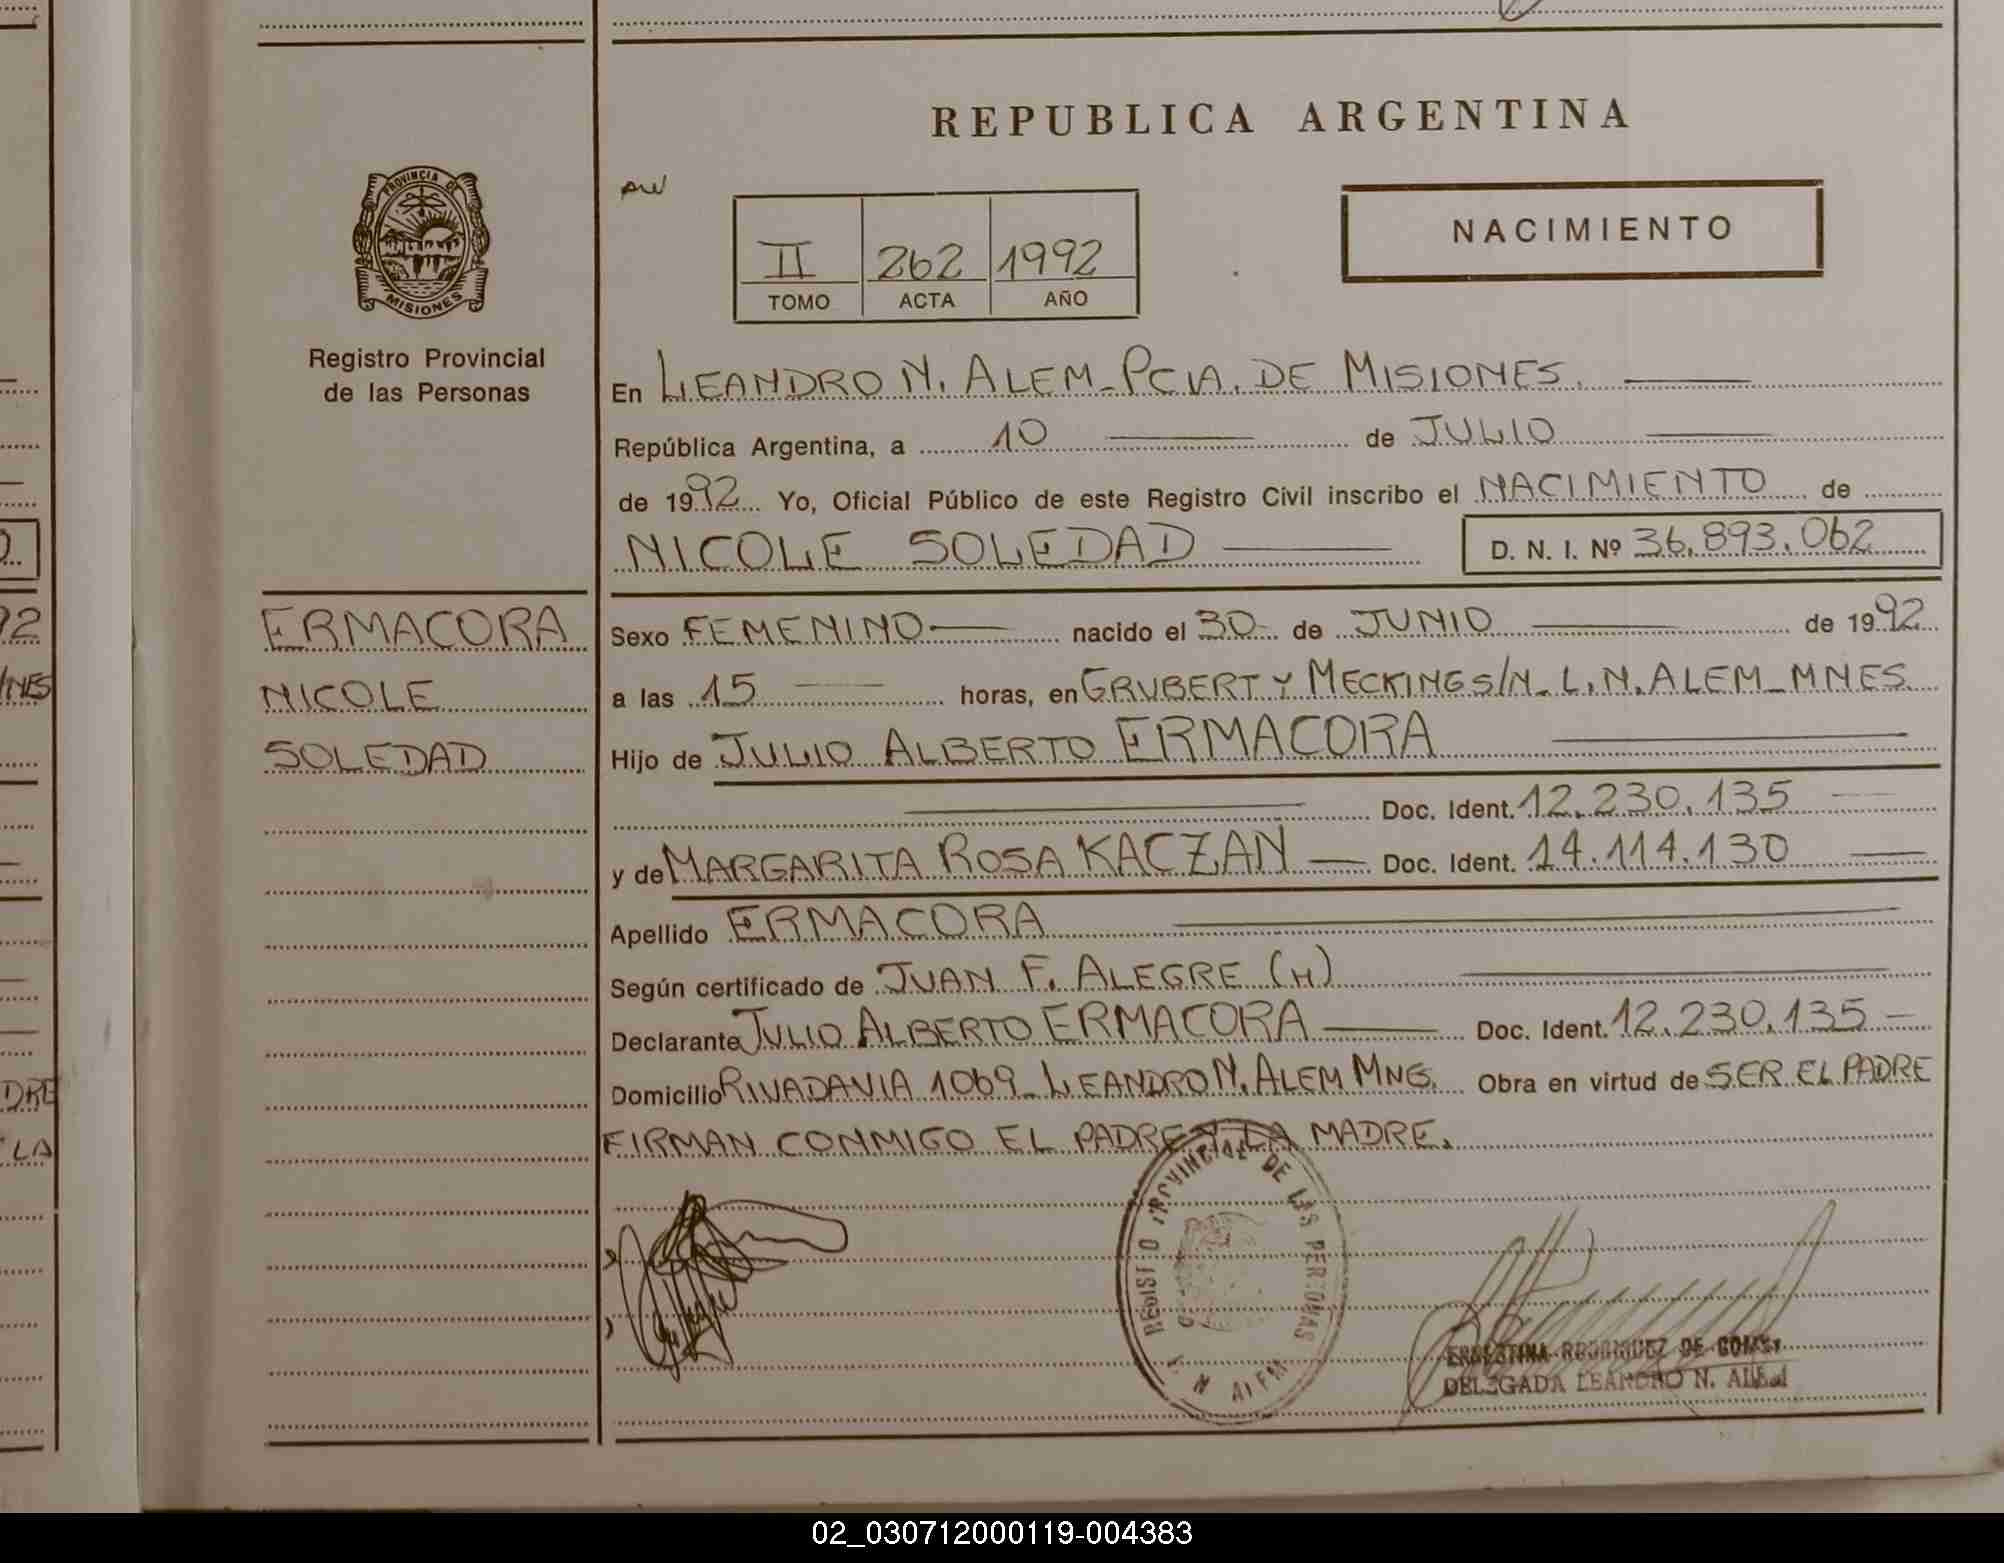 REPUBLICA ARGENTINA
PROVINCIA DE
MISIONES
Registro Provincial
de las Personas
II 262 1992
TOMO ACTA AÑO
NACIMIENTO
En LEANDRO N. ALEM - PCIA. DE MISIONES.
República Argentina, a 10 de JULIO
de 1992 Yo, Oficial Público de este Registro Civil inscribo el NACIMIENTO de
NICOLE SOLEDAD D. N. I. Nº 36.893.062
ERMACORA
NICOLE
SOLEDAD
Sexo FEMENINO nacido el 30 de JUNIO de 1992
a las 15 horas, en GRUBERT Y MECKING S/N - L. N. ALEM - MNES
Hijo de JULIO ALBERTO ERMACORA
Doc. Ident. 12.230.135
y de MARGARITA ROSA KACZAN Doc. Ident. 14.114.130
Apellido ERMACORA
Según certificado de JUAN F. ALEGRE (H)
Declarante JULIO ALBERTO ERMACORA Doc. Ident. 12.230.135
Domicilio RIVADAVIA 1069 - LEANDRO N. ALEM MNES. Obra en virtud de SER EL PADRE
FIRMAN CONMIGO EL PADRE Y LA MADRE.
REGISTRO PROVINCIAL DE LAS PERSONAS
L. N. ALEM
ERNESTINA RODRIGUEZ DE GOMEZ
DELEGADA LEANDRO N. ALEM
02_030712000119-004383